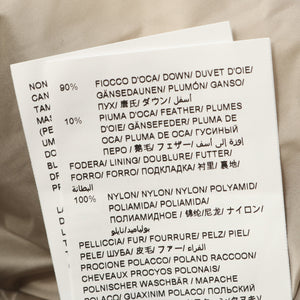 90% FIOCCO D'OCA/ DOWN/ DUVET D'OIE/
GÄNSEDAUNEN/ PLUMÓN/ GANSO/
ПУХ/ 鹰氏/ ダウン/ أسفل
10% PIUMA D'OCA/ FEATHER/ PLUMES
D'OIE/ GÄNSEFEDER/ PLUMA DE
OCA/ PLUMA DE OCA/ ГУСИНЫЙ
ПЕРО / 鹅毛/ フェザー/ إوزة إلى أسفل
FODERA/ LINING/ DOUBLURE/ FUTTER/
FORRO/ FORRO/ ПОДКЛАДКА/ 衬里/ 裏地/
البطانة
100% NYLON/ NYLON/ NYLON/ POLYAMID/
POLIAMIDA/ POLIAMIDA/
ПОЛИАМИДНОЕ / 锦纶/尼龙/ ナイロン/
بولياميد/نايلون
PELLICCIA/ FUR/ FOURRURE/ PELZ/ PIEL/
PELE/ ШУБА/ 皮毛/ ファー/ الفراء
PROCIONE POLACCO/ POLAND RACCOON/
CHEVEAUX PROCYOS POLONAIS/
POLNISCHER WASCHBÄR / MAPACHE
POLACO/ GUAXINIM POLACO/ ПОЛЬСКИЙ
NON
CAN
TAM
MAS
(PE